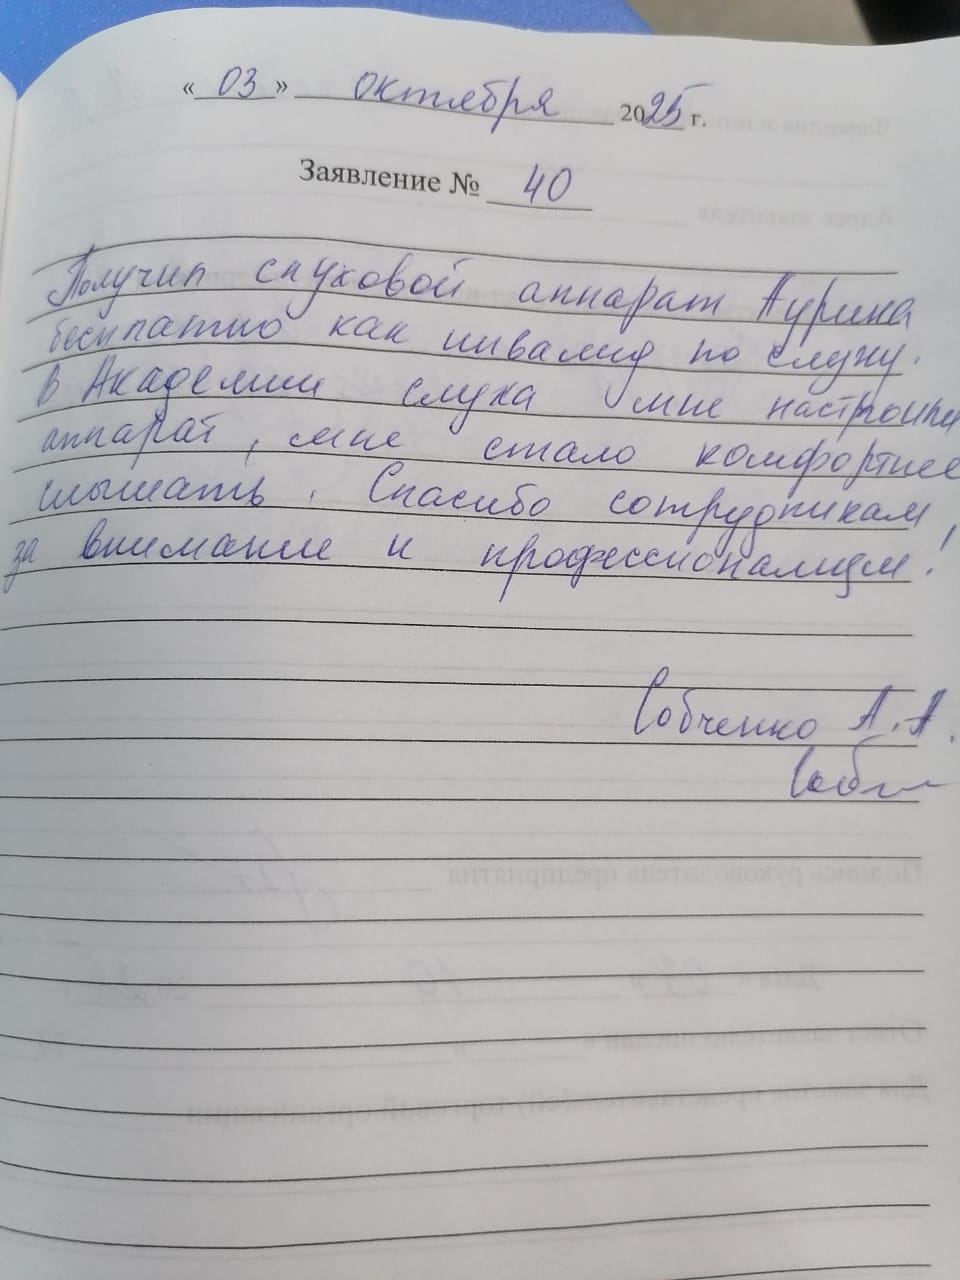 « 03 » октября 2025 г.
Заявление № 40
Получил слуховой аппарат Аурика
бесплатно как инвалид по слуху.
в Академии слуха мне настроили
аппарат, мне стало комфортнее
слышать. Спасибо сотрудникам,
за внимание и профессионализм!
Собченко А.А.